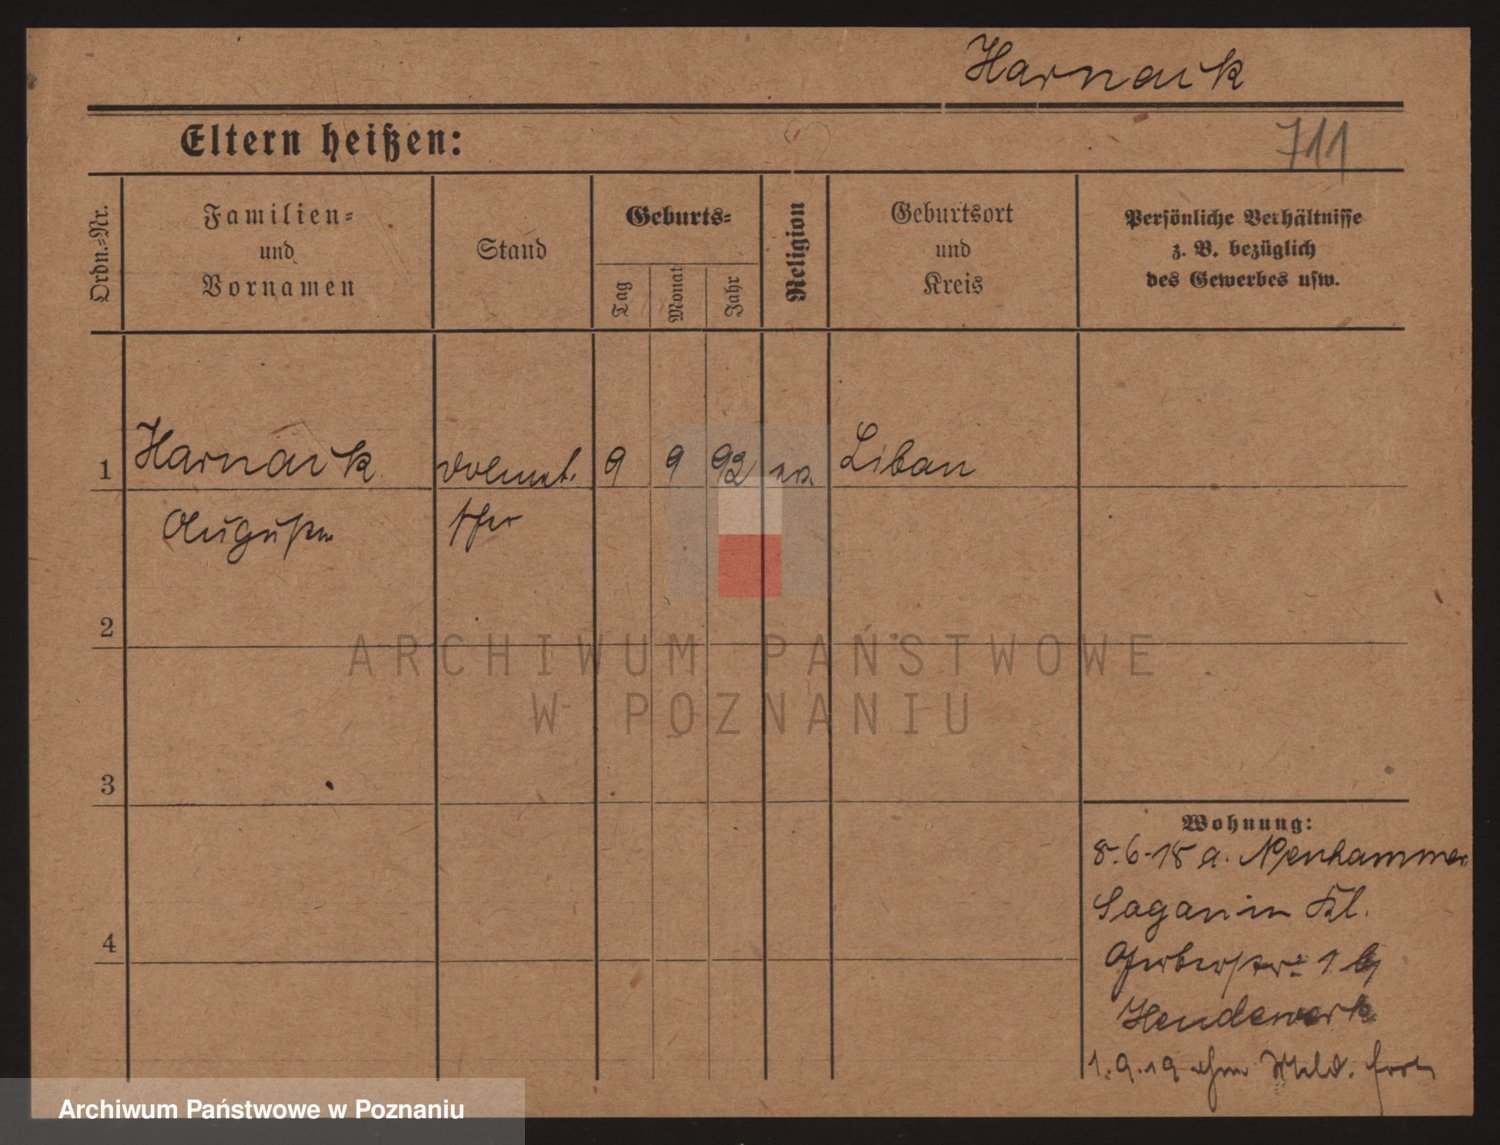 Harnack
Eltern heißen:
711
Ordn.=Nr.
Familien=
und
Vornamen
Stand
Geburts=
Tag
Monat
Jahr
Religion
Geburtsort
und
Kreis
Persönliche Verhältnisse
z. B. bezüglich
des Gewerbes usw.
1 Harnack 9 9 92 Libau
2
3
4
Wohnung:
8.6.18 a. Neuhammer
Sagan in
Gerberstr. 1 b
Hendewerk
1.9.19 fort
ARCHIWUM PAŃSTWOWE
W POZNANIU
Archiwum Państwowe w Poznaniu